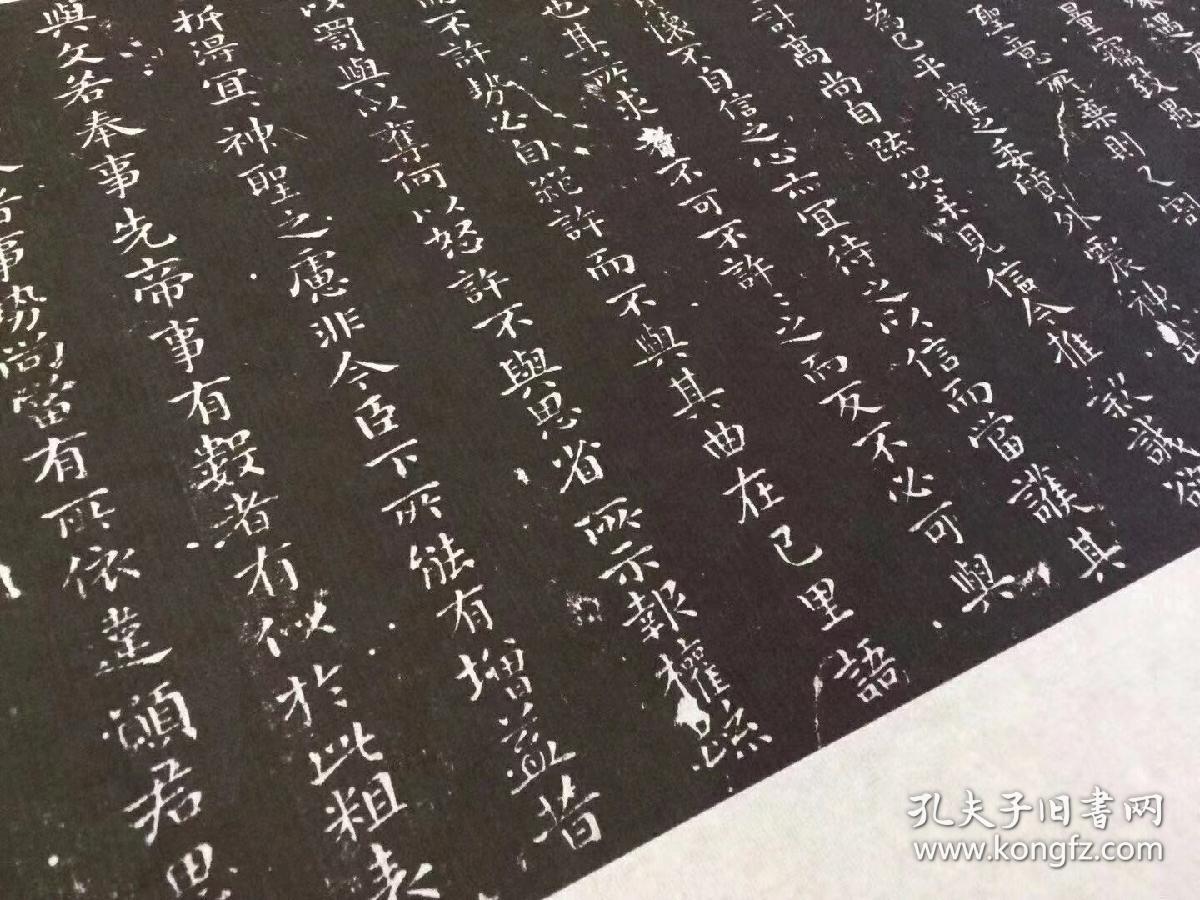 殊遇厚
量竊致愚
聖意所棄則又割
為已平權之委質外震神武
計高尚自疏況未見信今推款誠欲
懷不自信之心亦宜待之以信而當護其
也其所求者不可不許許之而反不必可與
而不許勢必自絕許而不與其曲在己里語
以罰與以奪何以怒許不與思省所示報權疏
折得宜宜神聖之慮非今臣下所能有增益昔
與文若奉事先帝事有數者有似於此粗表
今者事勢尚當有所依違願君思
孔夫子旧书网
www.kongfz.com